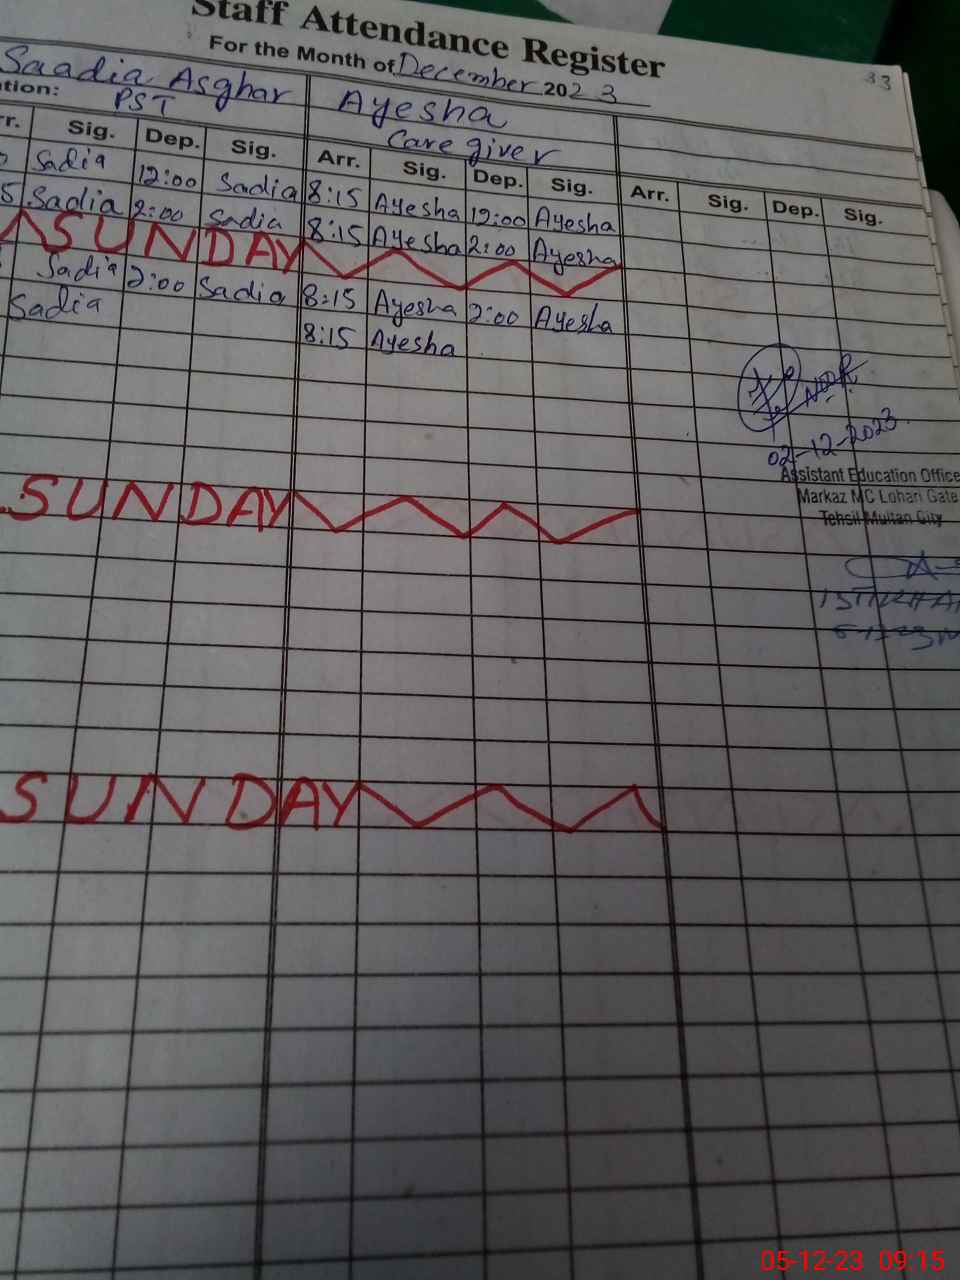 Staff Attendance Register
33
For the Month of December 2023
Saadia Asghar Ayesha
PST Care giver
Sig. Dep. Sig. Arr. Sig. Dep. Sig. Arr. Sig. Dep. Sig.
Sadia 12:00 Sadia 8:15 Ayesha 12:00 Ayesha
Sadia 2:00 Sadia 8:15 Ayesha 2:00 Ayesha
SUNDAY
Sadia 2:00 Sadia 8:15 Ayesha 2:00 Ayesha
Sadia 8:15 Ayesha
02-12-2023
Assistant Education Office
Markaz MC Lohari Gate
Tehsil Multan City
SUNDAY
SUNDAY
05-12-23 09:15